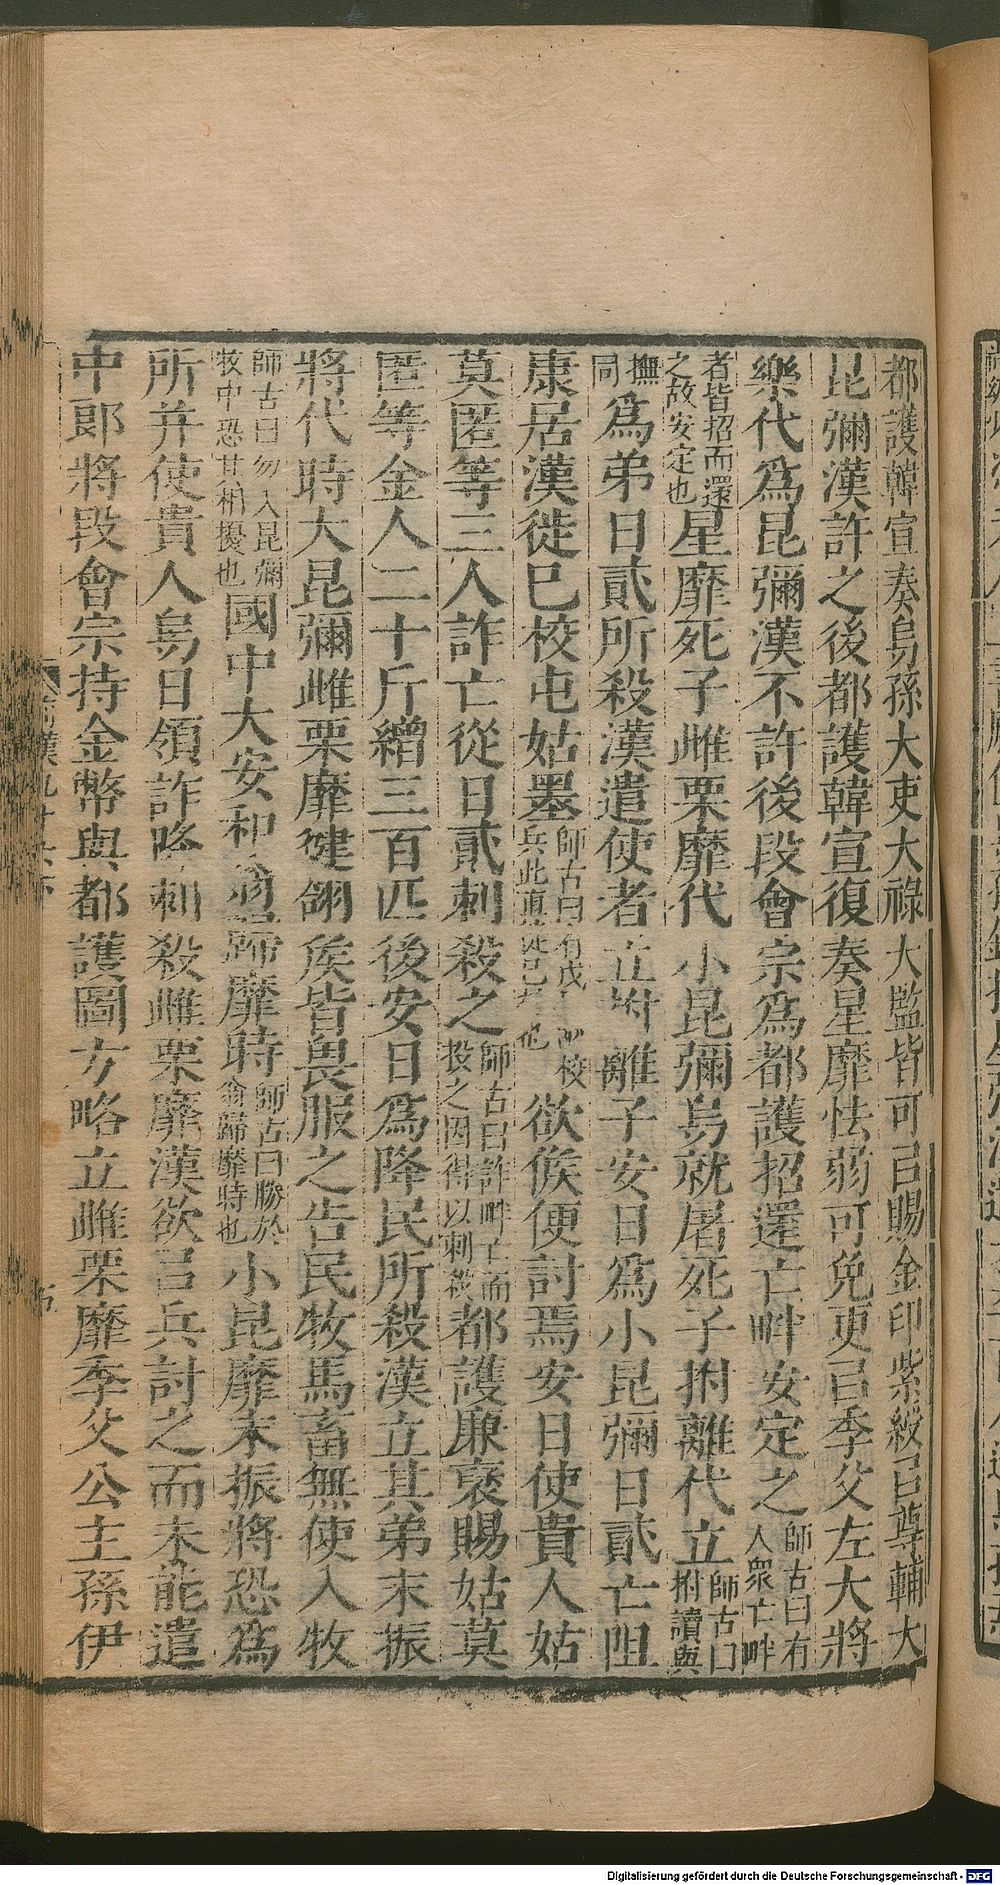 都護韓宣奏烏孫大吏大祿大監皆可㠯賜金印紫綬㠯尊輔大
昆彌漢許之後都護韓宣復奏星靡怯弱可免更㠯季父左大將
樂代爲昆彌漢不許後段會宗爲都護招還亡畔安定之師古曰有人衆亡畔
者皆招而還之故安定也星靡死子雌栗靡代小昆彌烏就屠死子拊離代立師古曰拊讀與
撫同爲弟日貳所殺漢遣使者立拊離子安日爲小昆彌日貳亡阻
康居漢徙已校屯姑墨師古曰有戊己校兵此直徙已校也欲候便討焉安日使貴人姑
莫匿等三人詐亡從日貳刺殺之師古曰詐畔亡而投之因得以刺殺都護廉襃賜姑莫
匿等金人二十斤繒三百匹後安日爲降民所殺漢立其弟末振
將代時大昆彌雌栗靡健翖侯皆畏服之告民牧馬畜無使入牧
師古曰勿入昆彌牧中恐其相擾也國中大安和翁歸靡時師古曰勝於翁歸靡時也小昆靡末振將恐爲
所并使貴人烏日領詐降刺殺雌栗靡漢欲㠯兵討之而未能遣
中郎將段會宗持金幣與都護圖方略立雌栗靡季父公主孫伊
前漢九十六下
Digitalisierung gefördert durch die Deutsche Forschungsgemeinschaft - DFG